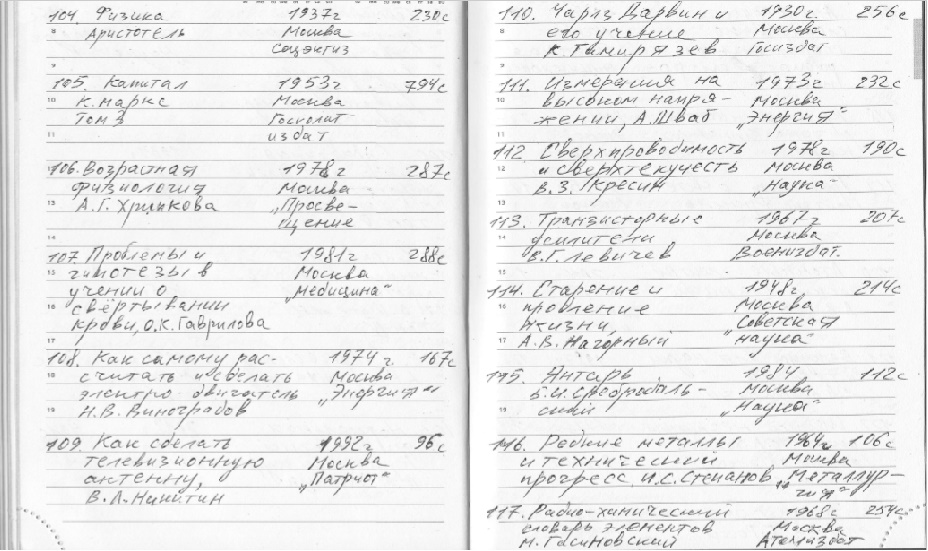 104. Физика 1937г 230с
Аристотель Москва
Соцэкгиз
105. Капитал 1953г 794с
К. Маркс Москва
Том 3 Госполит
издат
106. Возрастная 1978г 287с
физиология Москва
А.Г. Хрипкова „Просве-
щение
107 Проблемы и 1981г 288с
гипотезы в Москва
учении о „Медицина"
свёртывании
крови, О.К. Гаврилова
108. Как самому рас- 1974г 167с
считать и сделать Москва
электро двигатель „Энергия"
Н.В. Виноградов
109. Как сделать 1992г 96с
телевизионную Москва
антенну, „Патриот"
В.Л. Никитин
110. Чарлз Дарвин и 1930г. 256с
его учение Москва
К. Тимирязев Госиздат
111. Измерения на 1973г 232с
высоком напря- Москва
жении, А. Шваб „Энергия"
112 Сверхпроводимость 1978г 190с
и сверхтекучесть Москва
В.З. Кресин „Наука"
113. Транзисторные 1967г 207с
усилители Москва
В. Глевичев Воениздат.
114. Старение и 1948г. 214с
продление Москва
жизни, „Советская
А.В. Нагорный наука"
115. Янтарь 1984 112с
Москва
„Наука"
116. Редкие металлы 1964г. 106с
и технический Москва
прогресс И.С. Степанов „Металлур-
гия"
117. Радио-химический 1968г 254с
словарь элементов Москва
М. Гасиновский Атомиздат